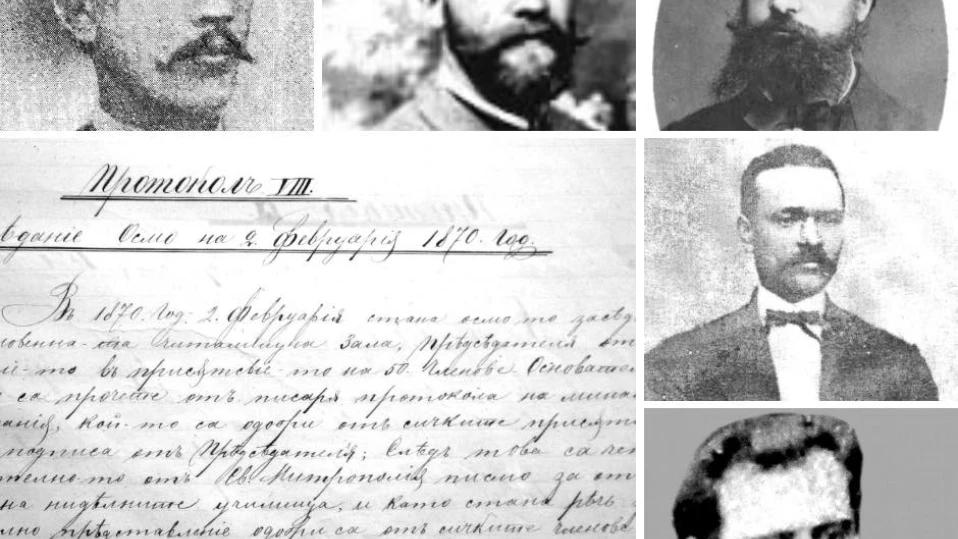 Протоколъ VIII.
Осмо на 2. Февруарія 1870. Год.
Въ 1870. Год. 2. Февруарія стана осмо то засѣд
Читалищна Зала, Прѣдсѣдателя от
въ присѫтствіе-то на 50. Членове Основател
са прочете отъ писаря протокола на мина
кой-то са одобри отъ сички-те присѫт
подписа отъ Прѣдсѣдателя; Слѣдъ това са чет
отъ Св. Митрополія писмо за от
на недѣлни-те училища, и като стана рѣч
прѣдставленіе одобри са отъ сички-те членове